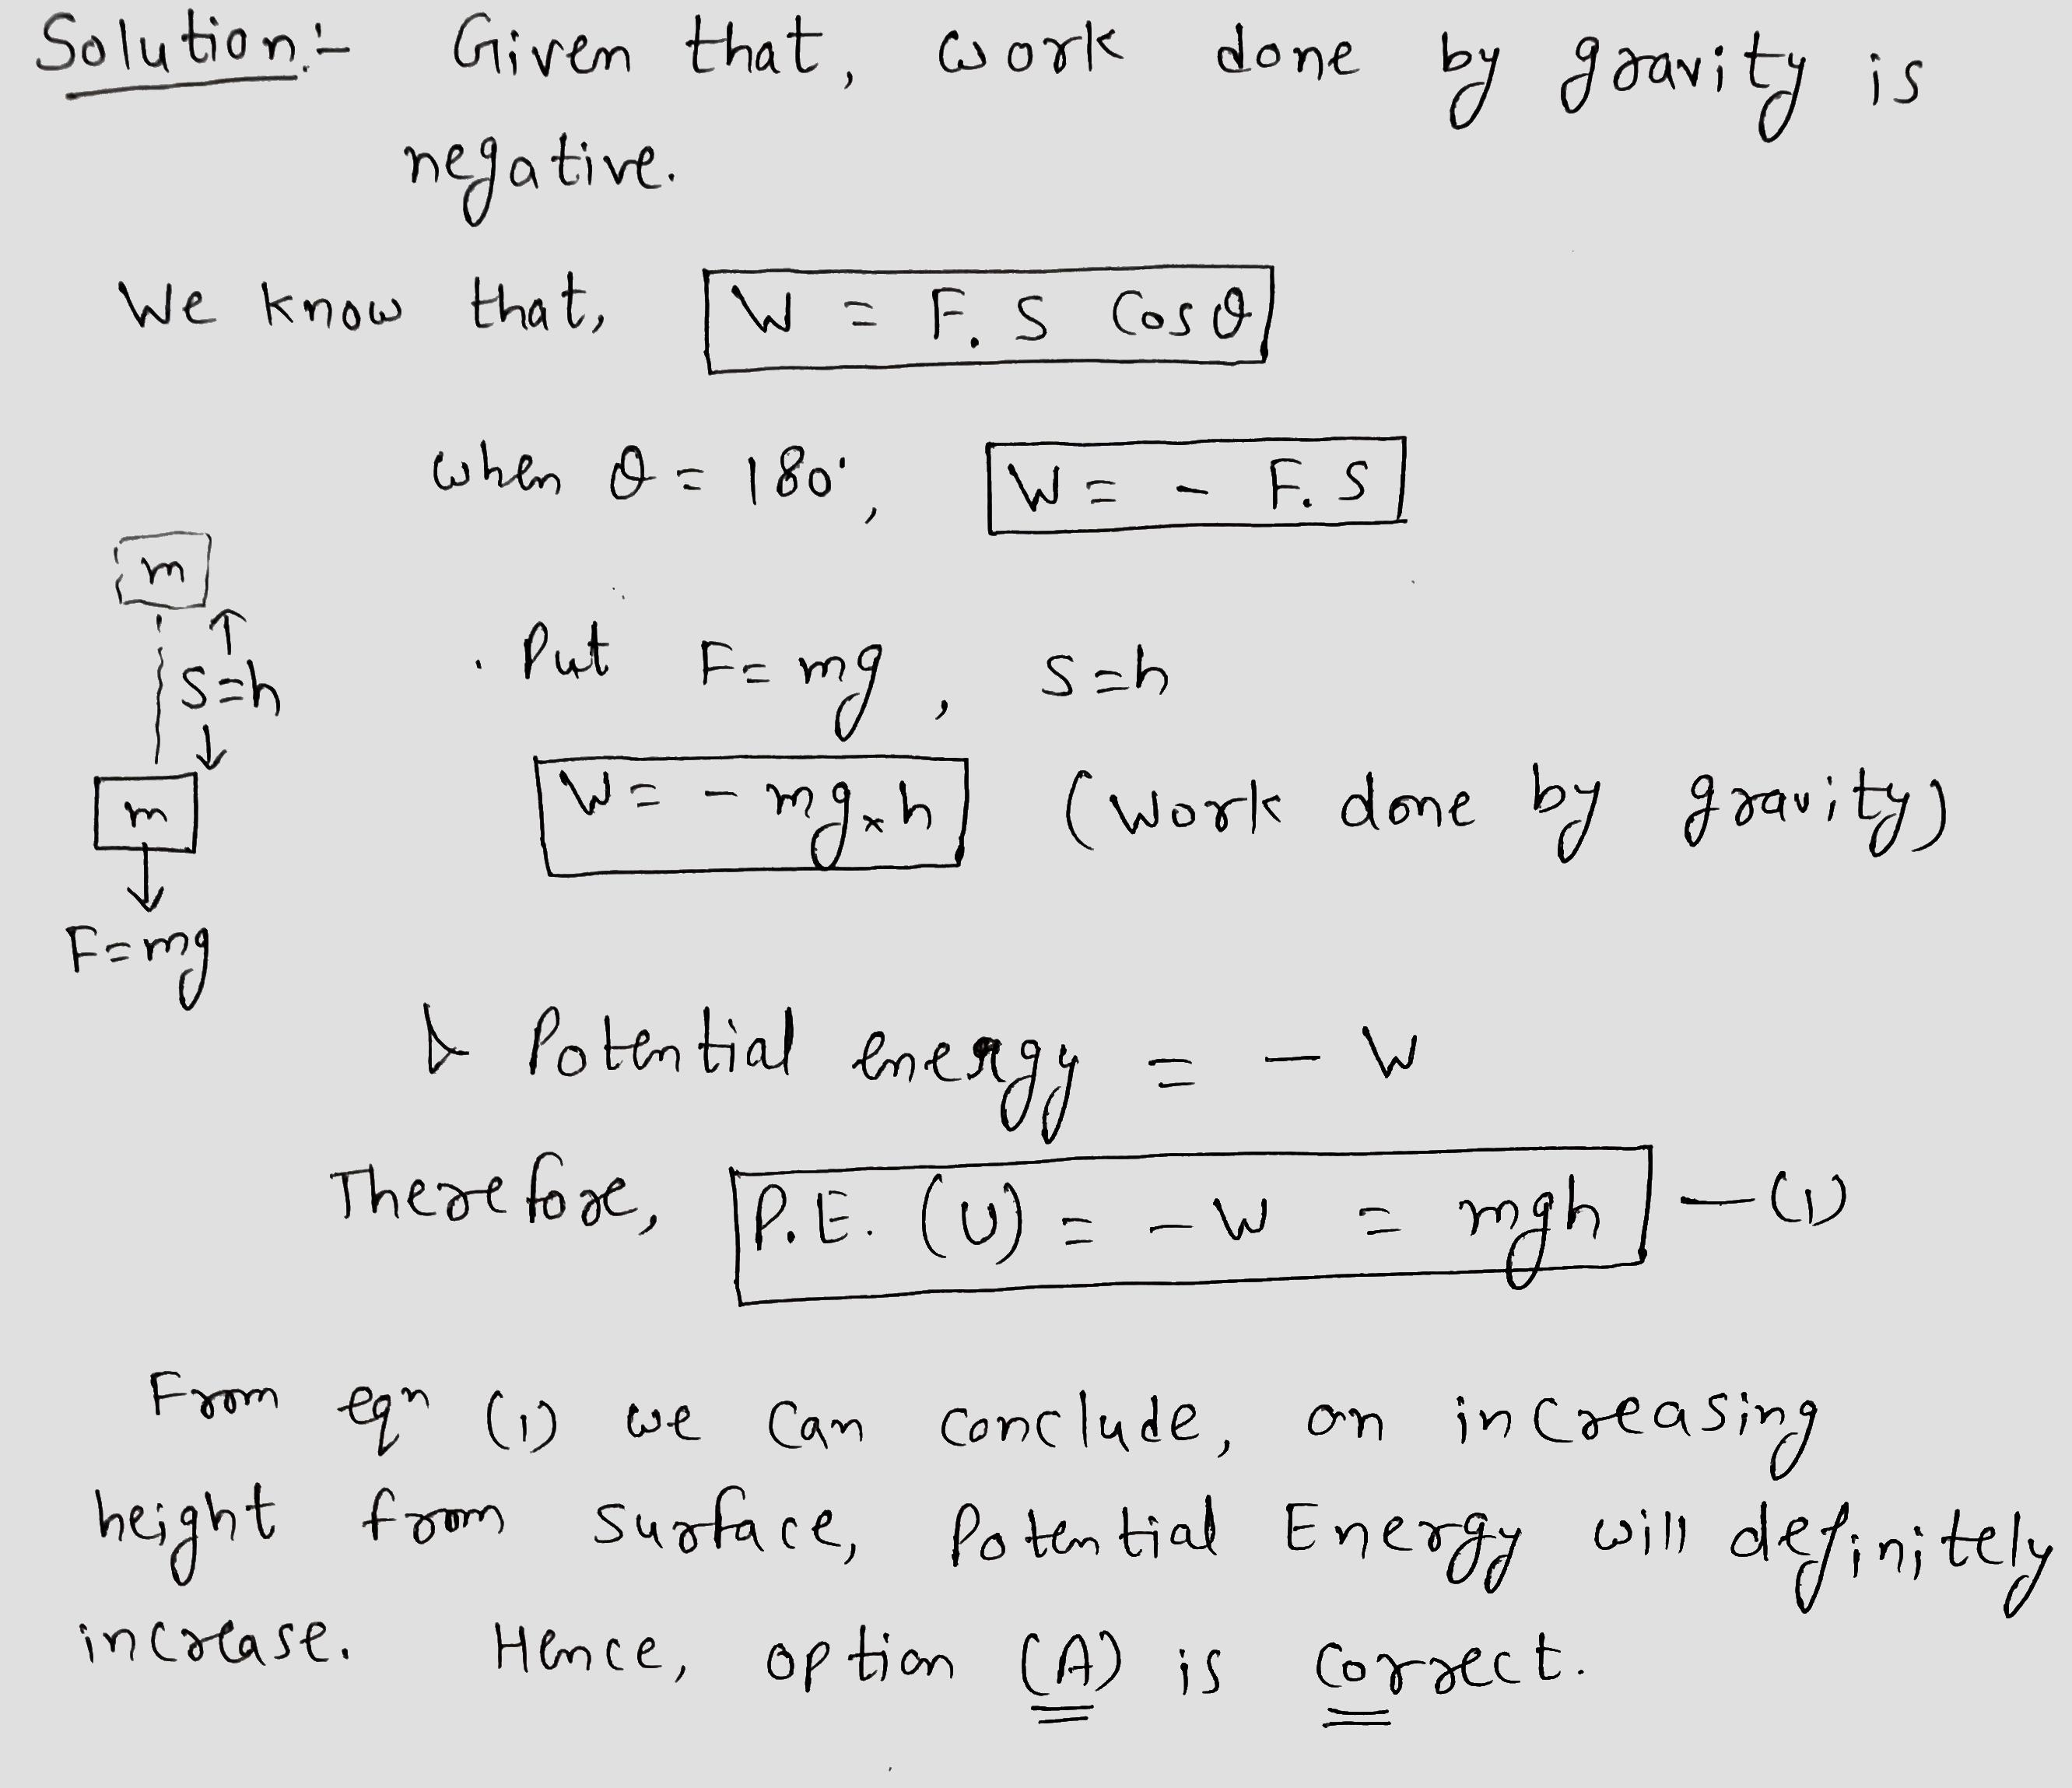 Solution:- Given that, work done by gravity is
negative.
We know that, W = F. S Cos θ
when θ = 180°, W = - F. S
m
S=h
. Put F= mg, S=h
m
W= - mg×h (Work done by gravity)
F=mg
Potential energy = - W
Therefore, P.E. (U) = - W = mgh - (1)
From eqn (1) we Can conclude, on increasing
height from surface, Potential Energy will definitely
increase. Hence, option (A) is correct.